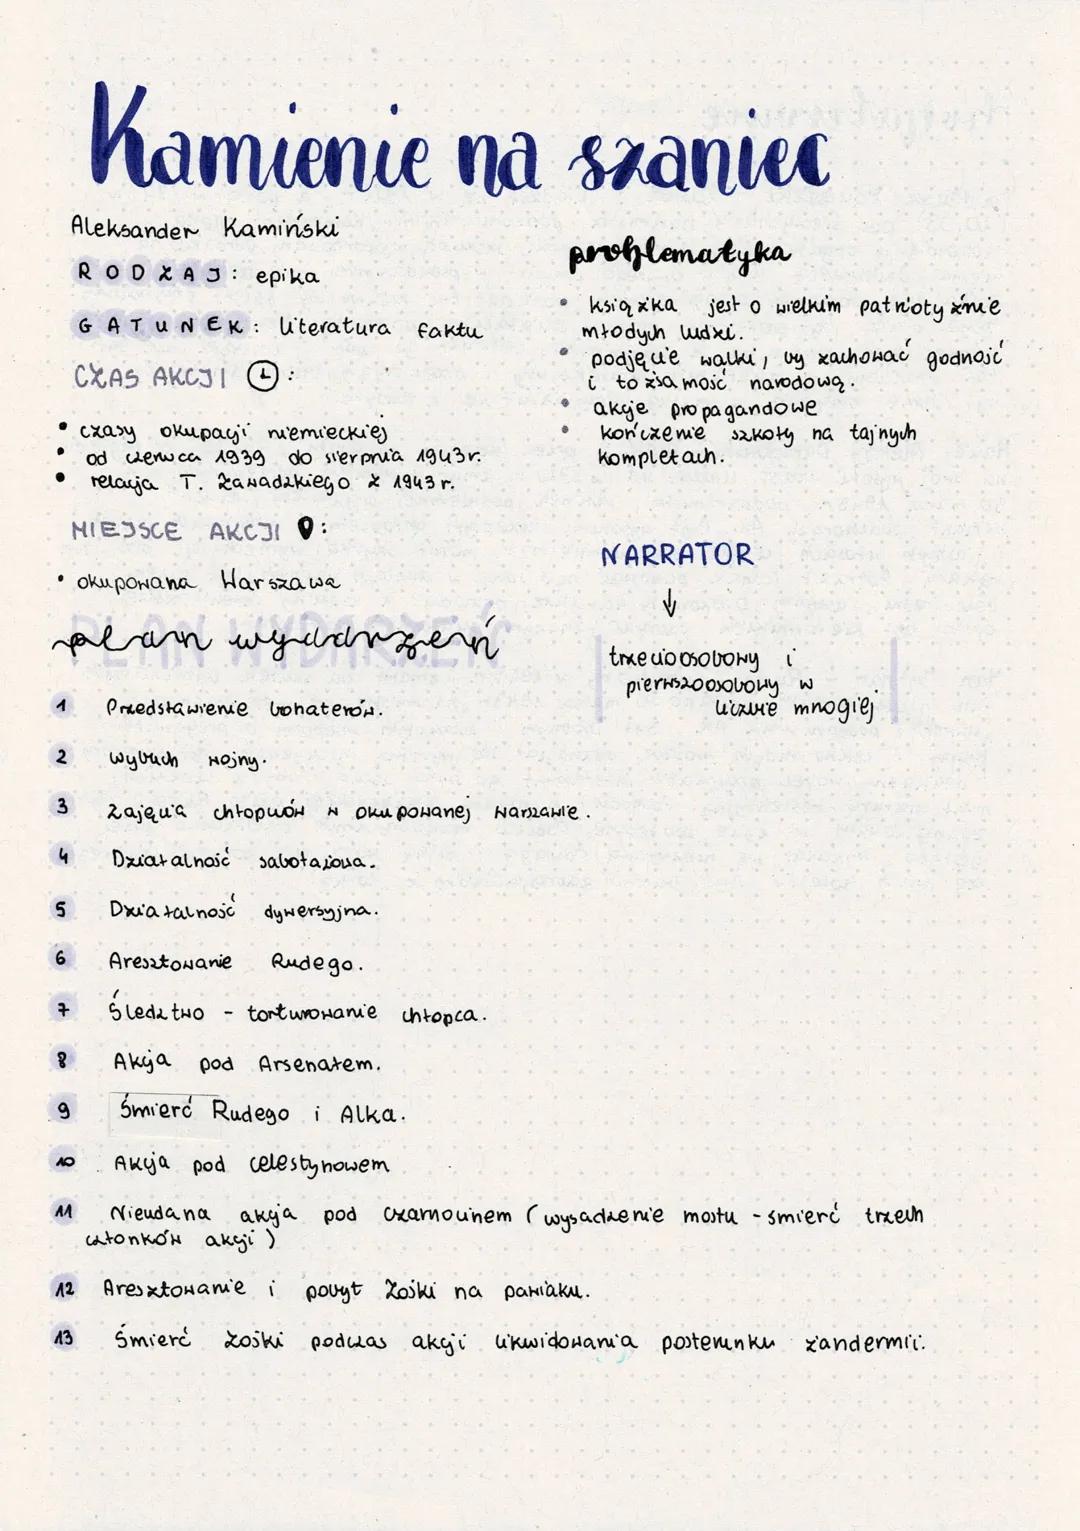 Kamienie na szaniec
Aleksander Kamiński
RODZAJ: epika
GATUNEK: literatura faktu
CZAS AKCJI:
• czasy okupacji niemieckiej
• od czerwca 1939 do sierpnia 1943r.
• relacja T. Zawadzkiego z 1943 r.
MIEJSCE AKCJI:
• okupowana Warszawa
problematyka
• książka jest o wielkim patriotyźmie
młodych ludzi.
• podjęcie walki, by zachować godność
i tożsamość narodową.
• akcje propagandowe
• kończenie szkoły na tajnych
kompletach.
NARRATOR
↓
trzecioosobowy i
pierwszoosobowy w
liczbie mnogiej
plan wydarzeń
1 Przedstawienie bohaterów.
2 Wybuch wojny.
3 Zajęcia chłopców w okupowanej Warszawie.
4 Działalność sabotażowa.
5 Działalność dywersyjna.
6 Aresztowanie Rudego.
7 Śledztwo - torturowanie chłopca.
8 Akcja pod Arsenałem.
9 Śmierć Rudego i Alka.
10 Akcja pod Celestynowem
11 Nieudana akcja pod Czarnocinem (wysadzenie mostu - śmierć trzech
członków akcji)
12 Aresztowanie i pobyt Zośki na pawiaku.
13 Śmierć Zośki podczas akcji likwidowania posterunku żandermii.